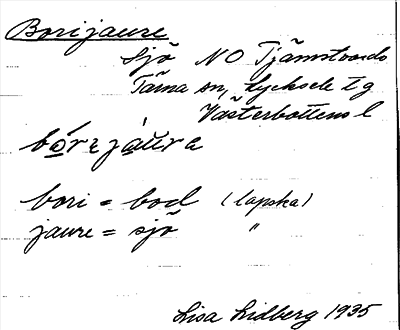 Borijaure
Sjö NO Tjåmstvardo
Tärna sn, Lycksele tg
Västerbottens l
bo̱ŕɛja̱u̇ra
bori = bod (lapska)
jaure = sjö "
Lisa Lidberg 1935